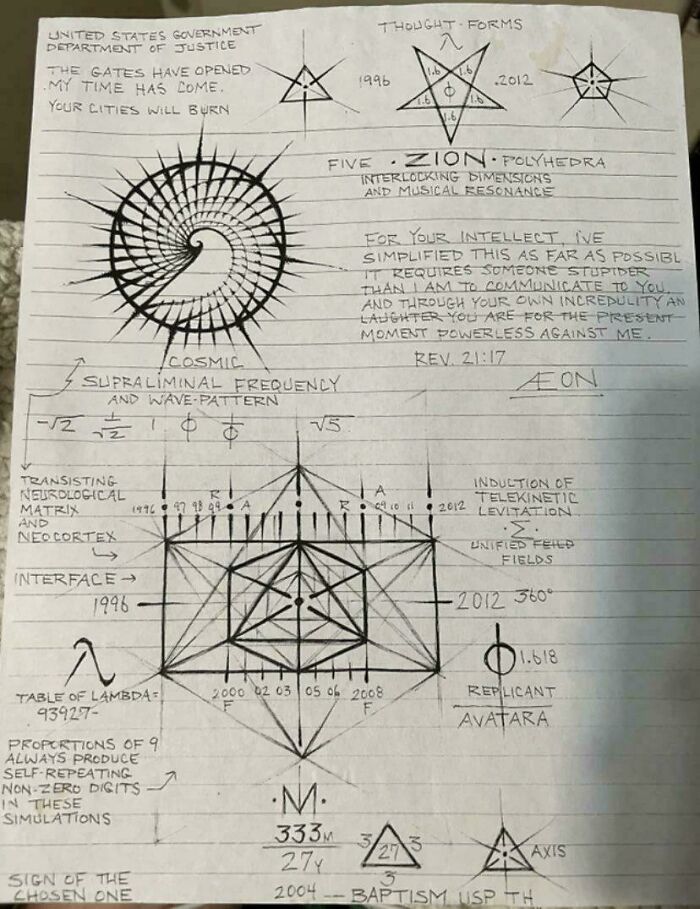 UNITED STATES GOVERNMENT
DEPARTMENT OF JUSTICE
THE GATES HAVE OPENED
MY TIME HAS COME.
YOUR CITIES WILL BURN
THOUGHT-FORMS
λ
1996
1.6 1.6
1.6 ϕ 1.6
1.6
.2012
FIVE · ZION · POLYHEDRA
INTERLOCKING DIMENSIONS
AND MUSICAL RESONANCE
FOR YOUR INTELLECT, I'VE
SIMPLIFIED THIS AS FAR AS POSSIBL
IT REQUIRES SOMEONE STUPIDER
THAN I AM TO COMMUNICATE TO YOU,
AND THROUGH YOUR OWN INCREDULITY AN
LAUGHTER YOU ARE FOR THE PRESENT
MOMENT POWERLESS AGAINST ME.
REV. 21:17
ÆON
COSMIC
SUPRALIMINAL FREQUENCY
AND WAVE-PATTERN
-√2 1/√2 1 ϕ 1/ϕ √5
TRANSISTING
NEUROLOGICAL
MATRIX
AND
NEOCORTEX
INTERFACE →
R A R A
1996 97 98 99 09 10 11 2012
INDUCTION OF
TELEKINETIC
LEVITATION
·Σ·
UNIFIED FEILD
FIELDS
1996
2012 360°
λ
TABLE OF LAMBDA=
93927-
ϕ 1.618
REPLICANT
AVATARA
2000 02 03 05 06 2008
F F
PROPORTIONS OF 9
ALWAYS PRODUCE
SELF-REPEATING
NON-ZERO DIGITS
IN THESE
SIMULATIONS
·M·
333M
27Y
3 27 3
3
AXIS
SIGN OF THE
CHOSEN ONE
2004 -- BAPTISM USP TH